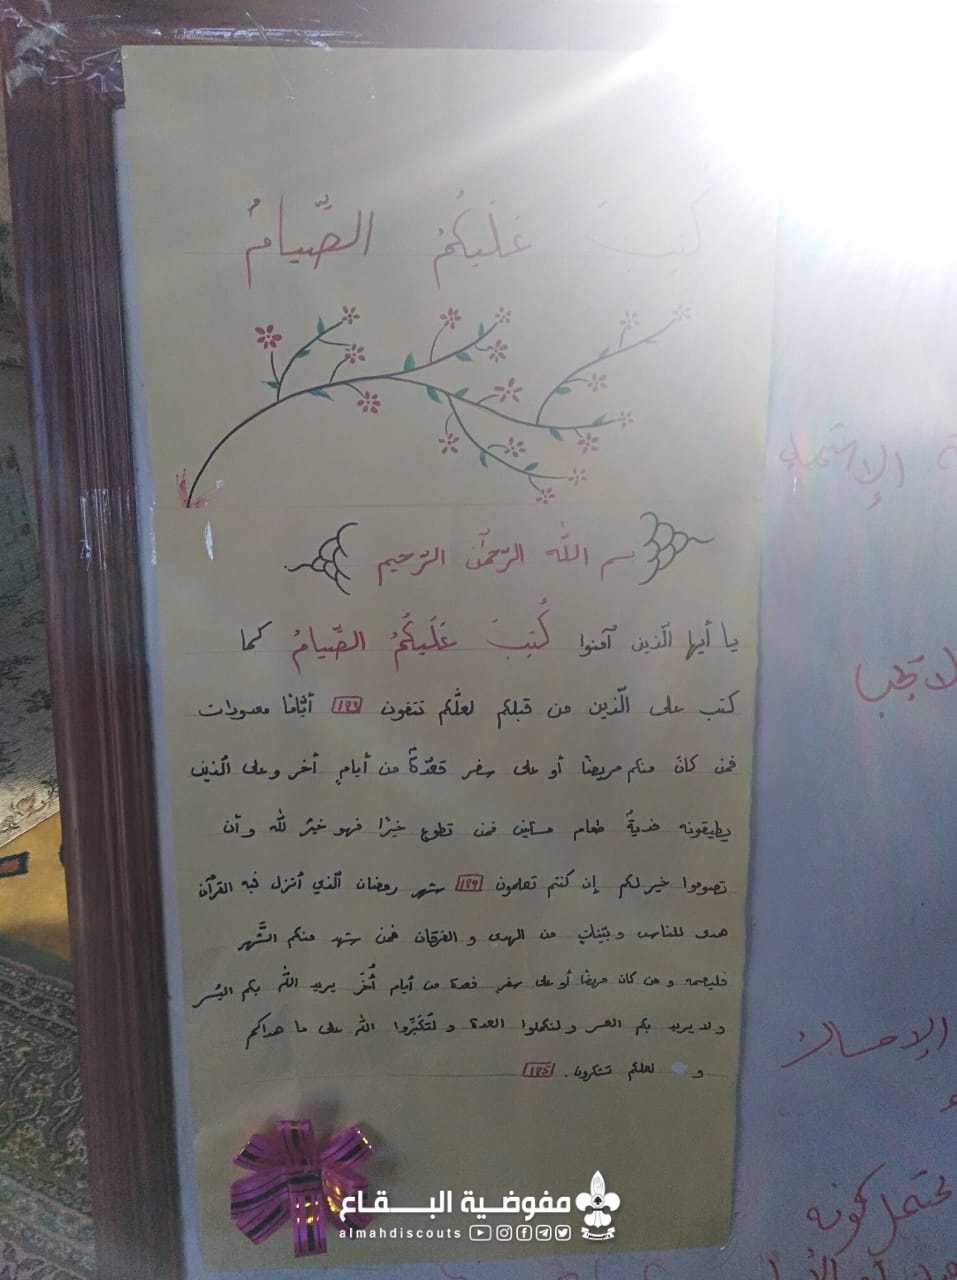 كُتِبَ عَلَيكُمُ الصِّيامُ
بسم اللّه الرّحمٰن الرّحيم
يا أيها الّذين آمنوا كُتِبَ عَلَيكُمُ الصِّيامُ كما
كتب على الّذين من قبلكم لعلّكم تتقون ١٨٣ أيّامًا معدودات
فمن كان منكم مريضًا أو على سفر فعدّةٌ من أيامٍ أخر وعلى الّذين
يطيقونه فديةٌ طعام مسكين فمن تطوع خيرًا فهو خيرٌ لّه وأن
تصوموا خير لكم إن كنتم تعلمون ١٨٤ شهر رمضان الّذي أنزل فيه القرآن
هدى للناس وبيّناتٍ من الهدى و الفرقان فمن شهد منكم الشَّهر
فليصمه ومن كان مريضًا أو على سفرٍ فعدة من أيام أُخَر يريد اللّه بكم اليُسر
ولا يريد بكم العسر ولتكملوا العدة ولتُكَبِّروا اللّه على ما هداكم
و لعلكم تشكرون. ١٨٥
الإستهلا
لا تجب
الإمساك
يحتمل كونه
مفوضية البقاع
almahdiscouts